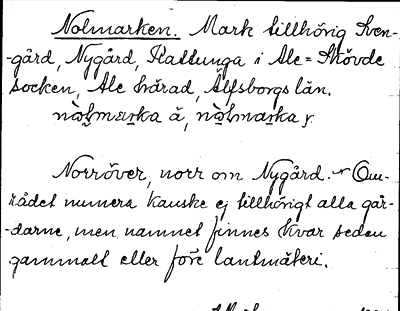 Nolmarken. Mark tillhörig Sven-
-gård, Nygård, Plattunga i Ale-Skövde
socken, Ale härad, Älfsborgs län.
ka å, ka
Norröver, norr om Nygård. Om-
rådet numera kanske ej tillhörigt alla går-
-darne, men namnet finnes kvar sedan
gammalt eller före lantmäteri.